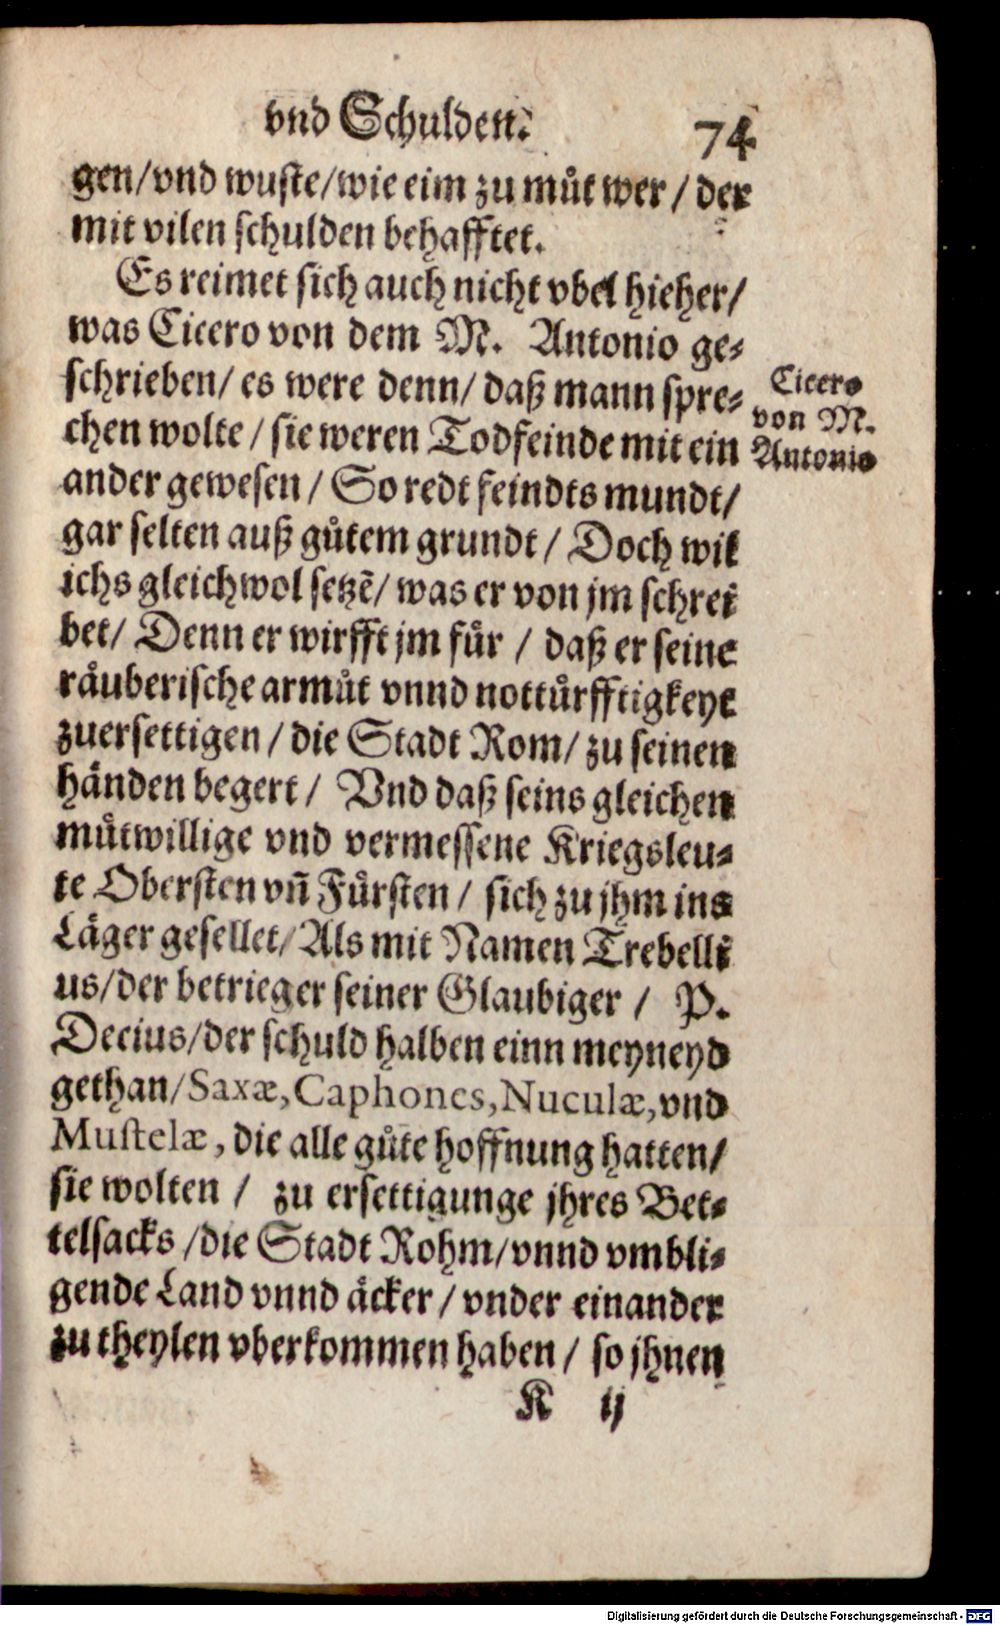 vnd Schulden. 74
gen/vnd wuste/wie eim zu můt wer / der
mit vilen schulden behafftet.
Es reimet sich auch nicht vbel hieher/
was Cicero von dem M. Antonio ge⸗
schrieben/ es were denn/ daß mann spre⸗
chen wolte / sie weren Todfeinde mit ein
ander gewesen / So redt feindts mundt/
gar selten auß gůtem grundt / Doch wil
ichs gleichwol setzẽ/ was er von jm schrei
bet/ Denn er wirfft jm fuͤr / daß er seine
raͤuberische armůt vnnd nottuͤrfftigkeyt
zuersettigen / die Stadt Rom/ zu seinen
haͤnden begert / Vnd daß seins gleichen
můtwillige vnd vermessene Kriegsleu⸗
te Obersten vñ Fuͤrsten / sich zu jhm ins
Laͤger gesellet/ Als mit Namen Trebelli
us/der betrieger seiner Glaubiger / P.
Decius/der schuld halben einn meyneyd
gethan/Saxæ, Caphones, Nuculæ, vnd
Mustelæ, die alle gůte hoffnung hatten/
sie wolten / zu ersettigunge jhres Bet⸗
telsacks /die Stadt Rohm/vnnd vmbli⸗
gende Land vnnd aͤcker / vnder einander
zu theylen vberkommen haben / so jhnen
K ij
Cicero
von M.
Antonio
Digitalisierung gefördert durch die Deutsche Forschungsgemeinschaft - DFG